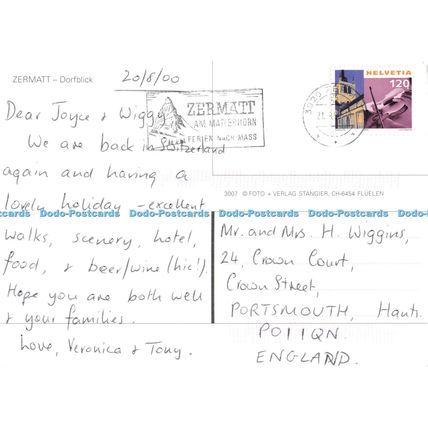 ZERMATT – Dorfblick
20/8/00
Dear Joyce & Wiggy
We are back in Switzerland
again and having a
lovely holiday – excellent
walks, scenery, hotel,
food, & beer/wine (hic!).
Hope you are both well
& your families.
Love, Veronica & Tony.
ZERMATT
AM MATTERHORN
FERIEN NACH MASS
3920
HELVETIA
120
3007 © FOTO + VERLAG STANGIER, CH-6454 FLÜELEN
Dodo-Postcards Dodo-Postcards Dodo-Postcards Dodo-Postcards Dodo-Postcards
Mr. and Mrs. H. Wiggins,
24, Crown Court,
Crown Street,
PORTSMOUTH, Hants.
PO1 1QN.
ENGLAND.